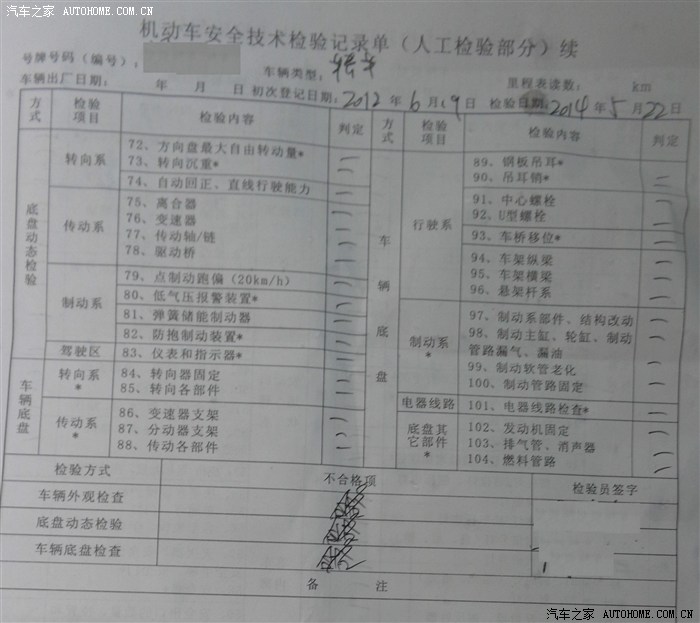 汽车之家 AUTOHOME.COM.CN
机动车安全技术检验记录单（人工检验部分）续
号牌号码（编号）： 车辆类型： 里程表读数： km
车辆出厂日期： 年 月 日 初次登记日期：2012年6月19日 检验日期：2014年5月22日
方式 检验项目 检验内容 判定 方式 检验项目 检验内容 判定
底盘动态检验
转向系
72、方向盘最大自由转动量*
73、转向沉重*
74、自动回正、直线行驶能力
传动系
75、离合器
76、变速器
77、传动轴/链
78、驱动桥
制动系
79、点制动跑偏（20km/h）
80、低气压报警装置*
81、弹簧储能制动器
82、防抱制动装置*
驾驶区
83、仪表和指示器*
车辆底盘
转向系*
84、转向器固定
85、转向各部件
传动系*
86、变速器支架
87、分动器支架
88、传动各部件
车辆底盘
行驶系
89、钢板吊耳*
90、吊耳销*
91、中心螺栓
92、U型螺栓
93、车桥移位*
94、车架纵梁
95、车架横梁
96、悬架杆系
制动系*
97、制动系部件、结构改动
98、制动主缸、轮缸、制动
管路漏气、漏油
99、制动软管老化
100、制动管路固定
电器线路
101、电器线路检查*
底盘其它部件*
102、发动机固定
103、排气管、消声器
104、燃料管路
检验方式 不合格项 检验员签字
车辆外观检查
底盘动态检验
车辆底盘检查
备 注
汽车之家 AUTOHOME.COM.CN